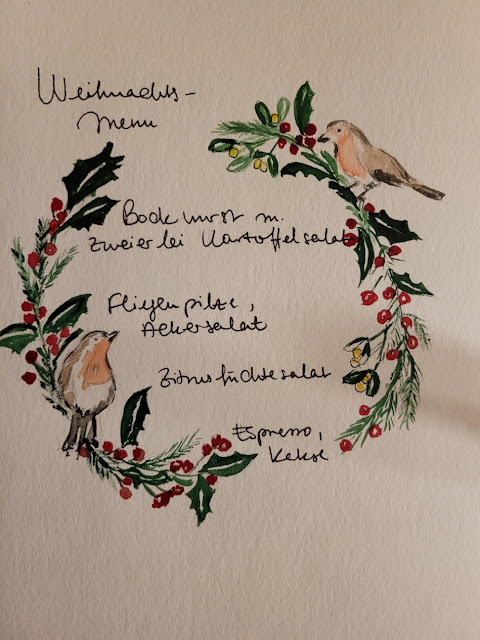 Weihnachts-
menu
Bockwurst m.
zweierlei Kartoffelsalat
Fliegenpilze,
Ackersalat
Zitrusfrüchtesalat
Espresso,
Kekse